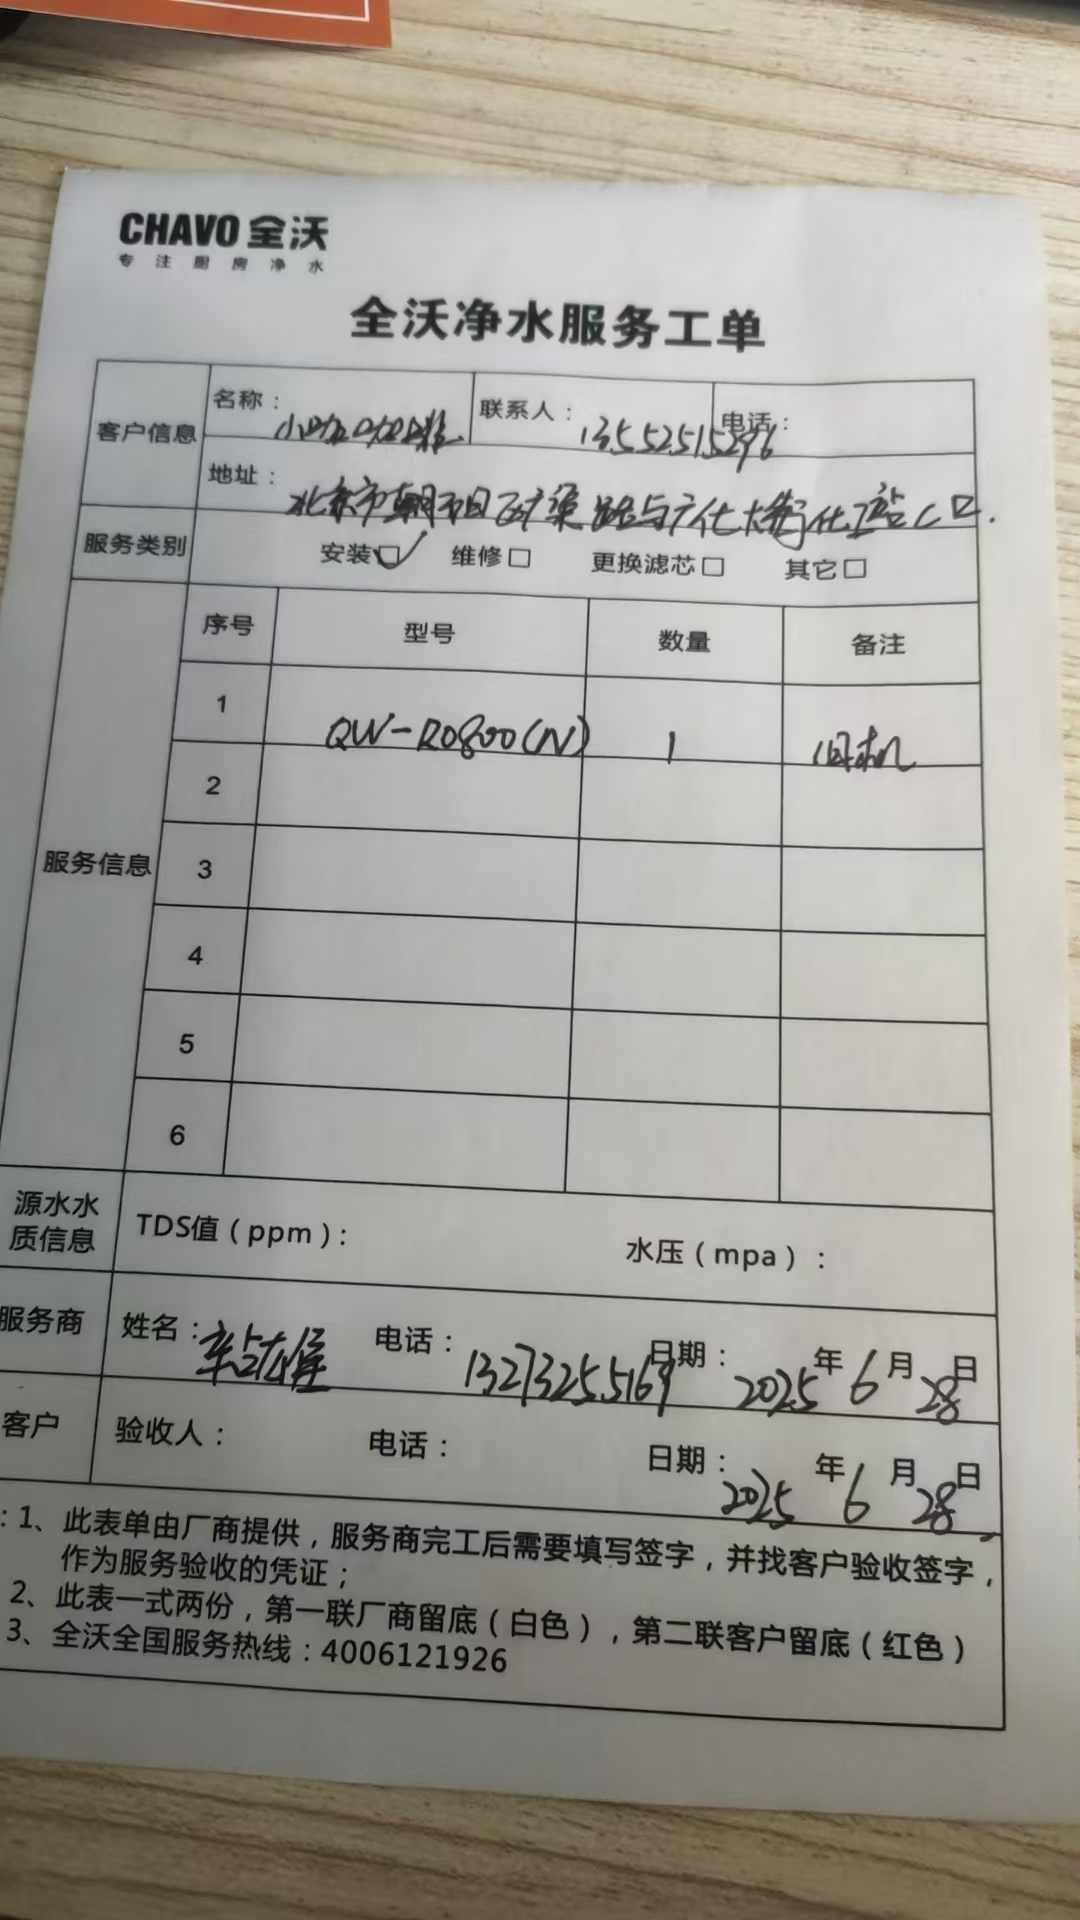 CHAVO 全沃
专注厨房净水
全沃净水服务工单
客户信息
名称：小咖咖啡 联系人：13552515296 电话：
地址：北京市朝阳区广渠路与化大 化工 C口.
服务类别 安装☑ 维修□ 更换滤芯□ 其它□
服务信息
序号 型号 数量 备注
1 QW-RO800(N) 1 旧机
2
3
4
5
6
源水水质信息 TDS值（ppm）： 水压（mpa）：
服务商 姓名： 电话：13273255169 日期：2025年6月28日
客户 验收人： 电话： 日期：2025年6月28日
：1、此表单由厂商提供，服务商完工后需要填写签字，并找客户验收签字，
作为服务验收的凭证；
2、此表一式两份，第一联厂商留底（白色），第二联客户留底（红色）
3、全沃全国服务热线：4006121926